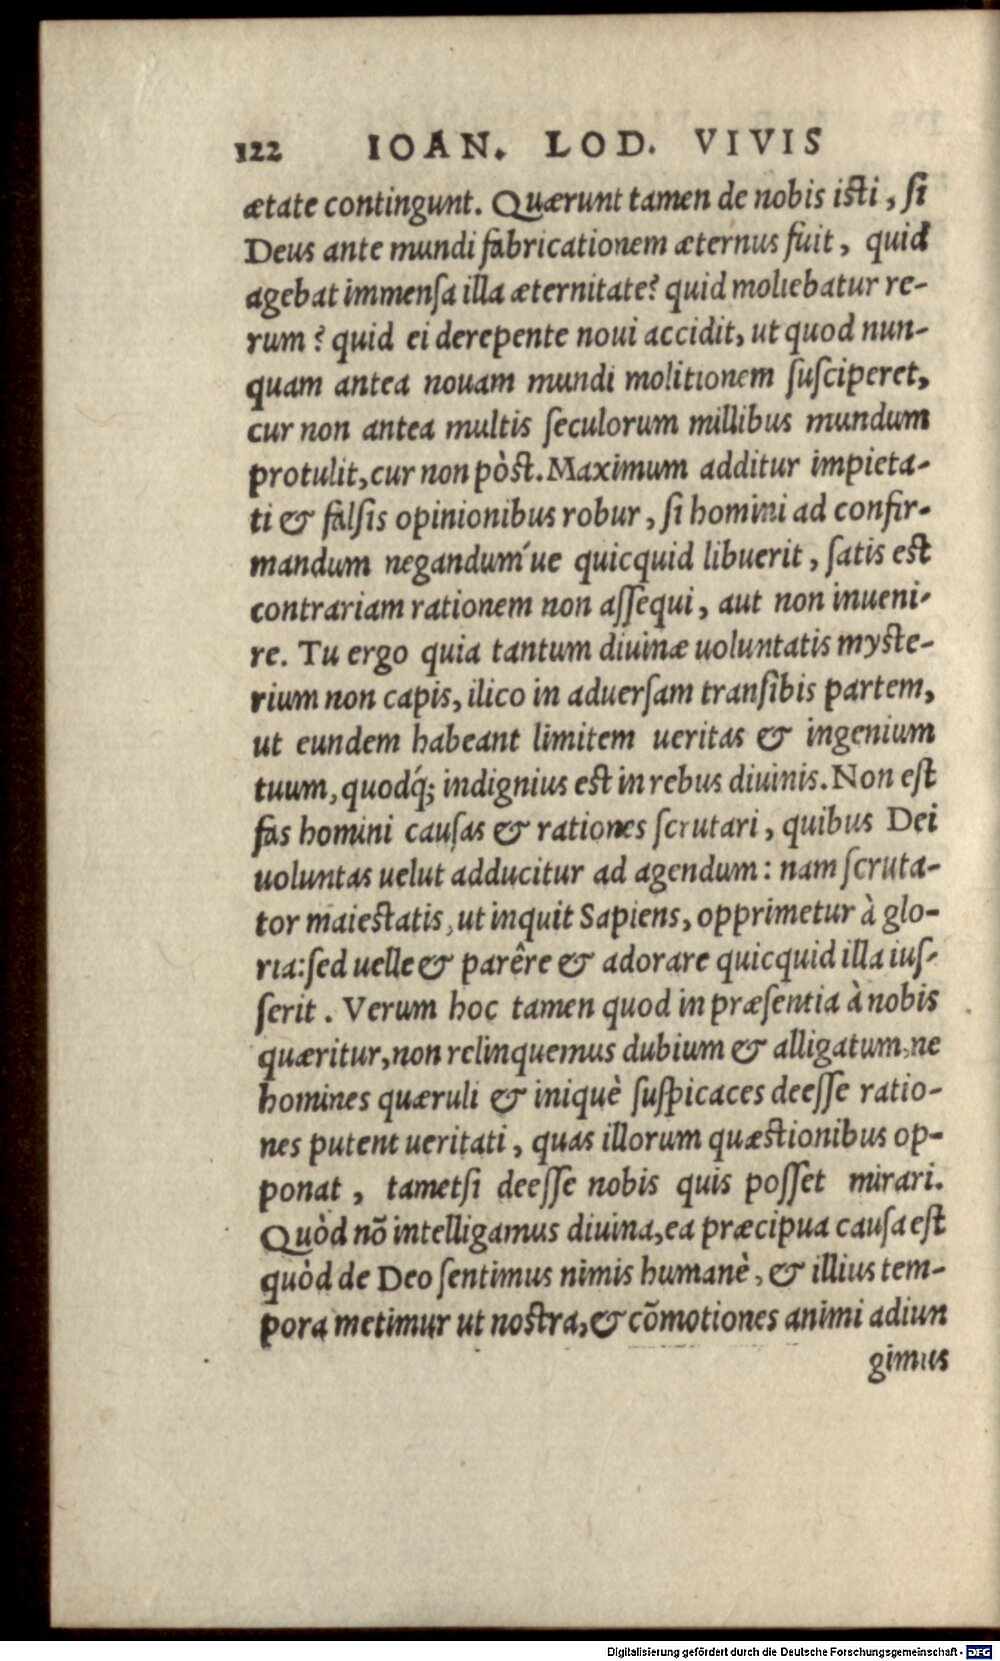 122 IOAN. LOD. VIVIS
ætate contingunt. Quærunt tamen de nobis isti, ſi
Deus ante mundi fabricationem æternus fuit, quid
agebat immenſa illa æternitate? quid moliebatur re-
rum? quid ei derepente noui accidit, ut quod nun-
quam antea nouam mundi molitionem ſuſciperet,
cur non antea multis ſeculorum millibus mundum
protulit, cur non pòst. Maximum additur impieta-
ti & falſis opinionibus robur, ſi homini ad confir-
mandum negandum´ue quicquid libuerit, ſatis est
contrariam rationem non aſſequi, aut non inueni-
re. Tu ergo quia tantum diuinæ uoluntatis myste-
rium non capis, ilico in aduerſam tranſibis partem,
ut eundem habeant limitem ueritas & ingenium
tuum, quodq́; indignius est in rebus diuinis. Non eſt
fas homini cauſas & rationes ſcrutari, quibus Dei
uoluntas uelut adducitur ad agendum: nam ſcruta-
tor maiestatis, ut inquit Sapiens, opprimetur à glo-
ria: ſed uelle & parêre & adorare quicquid illa iuſ-
ſerit. Verum hoc tamen quod in præſentia à nobis
quæritur, non relinquemus dubium & alligatum, ne
homines quæruli & iniquè ſuſpicaces deeſſe ratio-
nes putent ueritati, quas illorum quæstionibus op-
ponat, tametſi deeſſe nobis quis poſſet mirari.
Quòd nõ intelligamus diuina, ea præcipua cauſa eſt
quòd de Deo ſentimus nimis humanè, & illius tem-
pora metimur ut nostra, & cõmotiones animi adiun
gimus
Digitalisierung gefördert durch die Deutsche Forschungsgemeinschaft - DFG